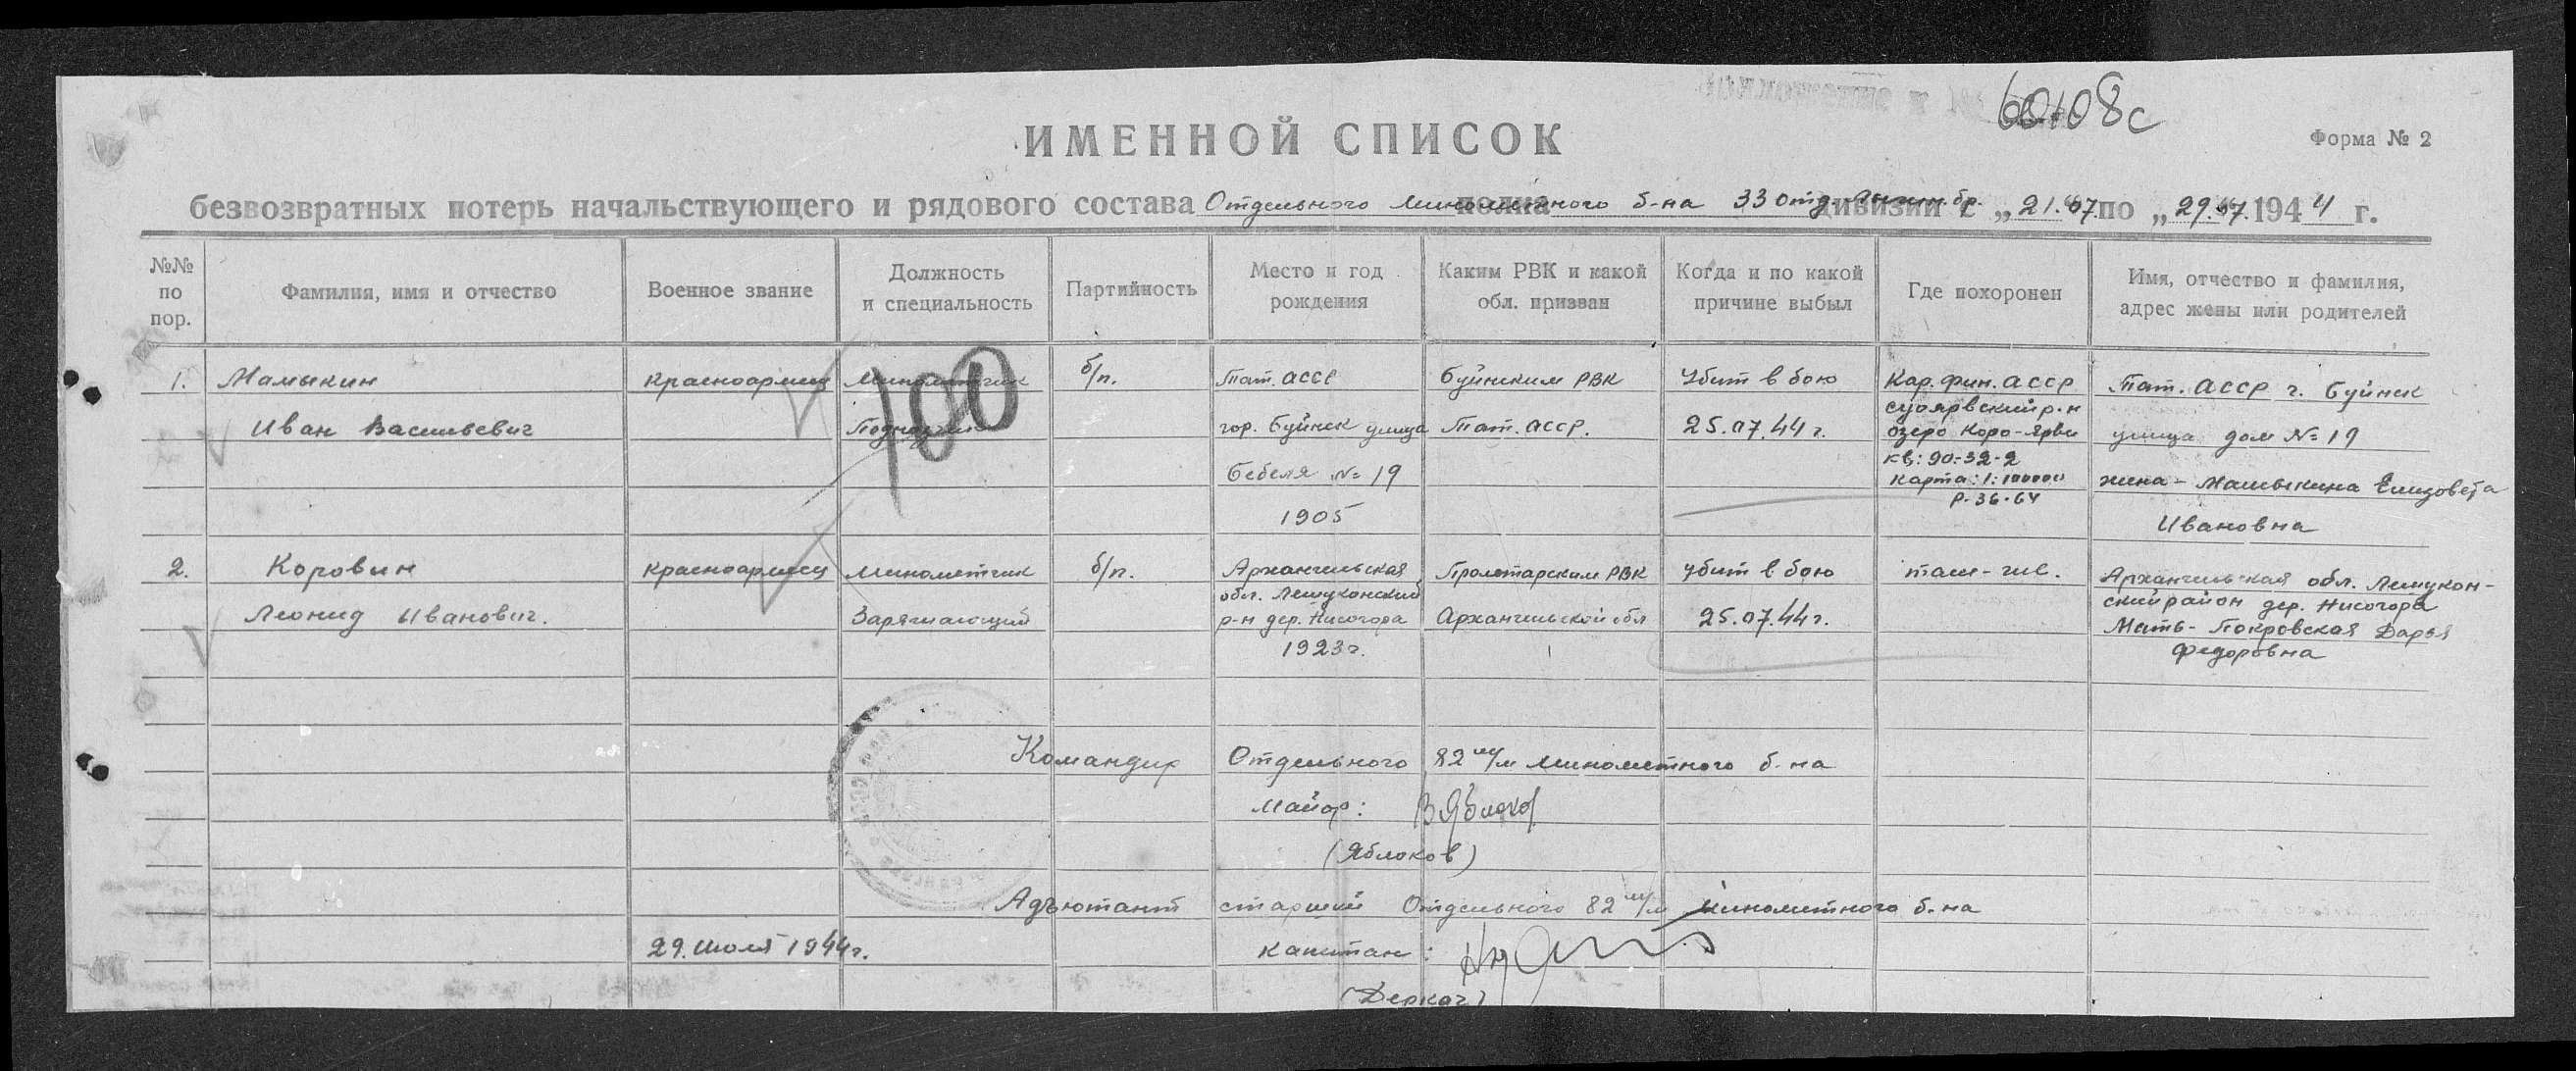 60108с
ИМЕННОЙ СПИСОК
Форма № 2
безвозвратных потерь начальствующего и рядового состава Отдельного минометного б-на 33 отд. лыжн. бр. дивизии с „21.07 по „29.07.1944 г.
№№ по пор.
Фамилия, имя и отчество
Военное звание
Должность и специальность
Партийность
Место и год рождения
Каким РВК и какой обл. призван
Когда и по какой причине выбыл
Где похоронен
Имя, отчество и фамилия, адрес жены или родителей
100
1. Мамыкин
Иван Васильевич
красноармеец
Минометчик
б/п.
Тат. АССР
гор. Буинск улица
Бебеля № 19
1905
Буинским РВК
Тат. АССР.
Убит в бою
25.07.44 г.
Кар. фин. АССР
суоярвский р-н
озеро Коро-Ярви
кв: 90-32-2
карта: 1:100000
Р-36-64
Тат. АССР г. Буинск
улица дом № 19
жена - Мамыкина Елизовета
Ивановна
2. Коровин
Леонид Иванович.
красноармеец
минометчик
Заряжающий
б/п.
Архангельская
обл. Лешуконский
р-н дер. Нисогора
1923 г.
Пролетарским РВК
Архангельской обл
убит в бою
25.07.44 г.
там-же.
Архангельская обл. Лешукон-
ский район дер. Нисогора
Мать - Покровская Дарья
Федоровна
Командир Отдельного 82 м/м минометного б-на
Майор:
(Яблоков)
Адъютант старший Отдельного 82 м/м минометного б-на
29. июля 1944 г.
капитан:
(Деркач)